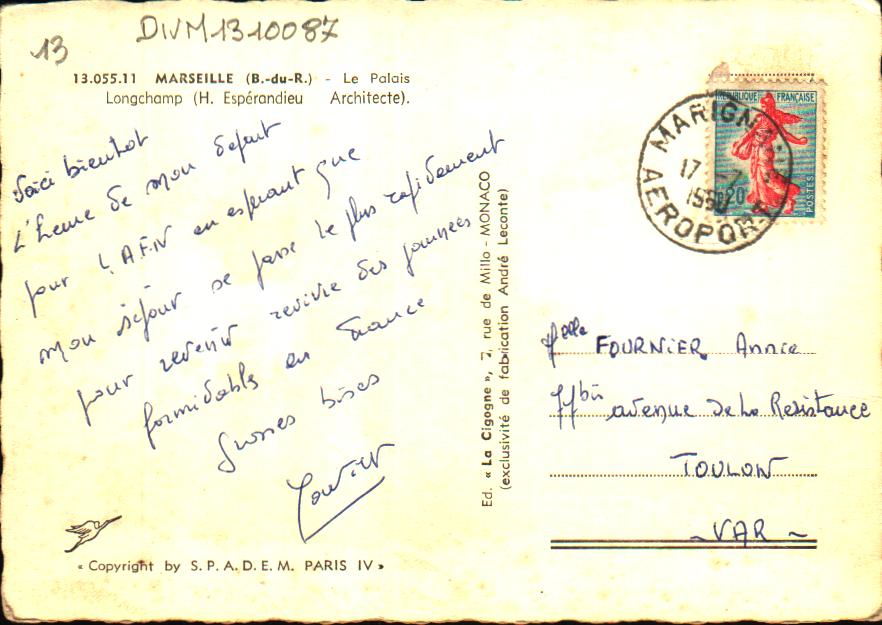 13
DIVM1310087
13.055.11 MARSEILLE (B.-du-R.) - Le Palais
Longchamp (H. Espérandieu Architecte).
Voici bientot
L'heure de mon depart
pour L'A.F.N en esperant que
mon séjour se passe le plus rapidement
pour revenir revivre des journées
formidables en France
Grosses bises
« Copyright by S.P.A.D.E.M. PARIS IV »
Ed. « La Cigogne », 7, rue de Millo - MONACO
(exclusivité de fabrication André Leconte)
REPUBLIQUE FRANÇAISE
0,20
POSTES
MARIGNANE
17 - 7
AEROPORT
Melle FOURNIER Annie
77 bis avenue de La Resistance
TOULON
~ VAR ~